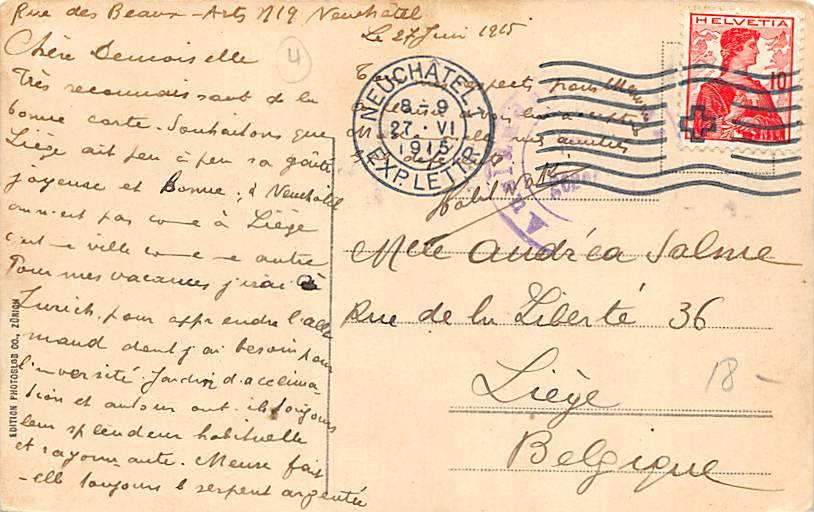 Rue des Beaux-Arts N19 Neuchâtel
Le 27 Juin 1915
Chère Demoiselle
Très reconnaissant de la
bonne carte. Souhaitons que
Liège ait peu à peu sa gaîté
joyeuse et Bonne; à Neuchâtel
on n'est pas come à Liège
c'est une ville come une autre
Pour mes vacances j'irai à
Zurich pour apprendre l'alle
mand dont j'ai besoin pour
l'université. Jardin d'acclima-
tion et autour ont-ils toujours
leur splendeur habituelle
et rayonnante. Meuse fait
-elle toujours le serpent argentée
respects pour
acceptez
Mlle mes amitiés
4
NEUCHÂTEL 1
8-9
27.VI
1915
EXP. LETTR.
HELVETIA
10
Mlle Andréa Salme
Rue de la Liberté 36
Liège
Belgique
18 -
EDITION PHOTOGLOB CO., ZÜRICH